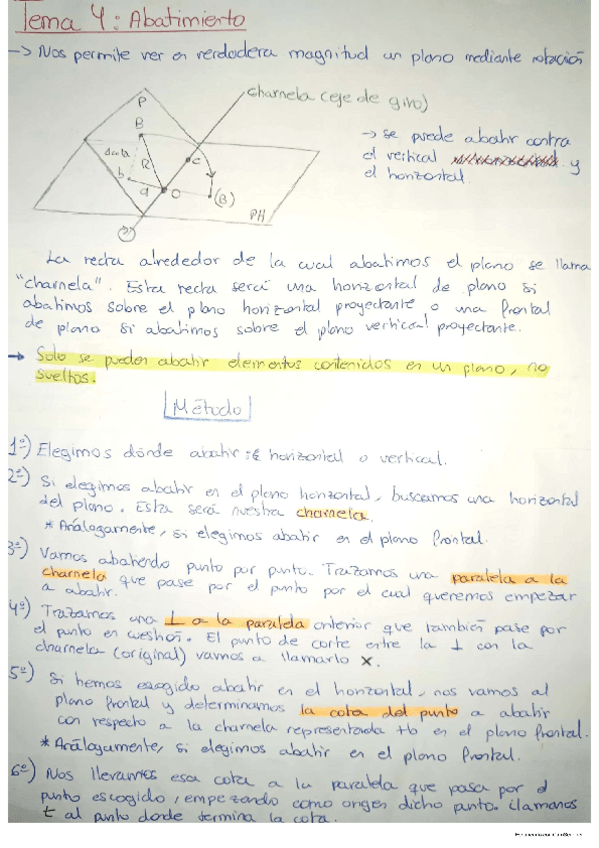 Tema 4: Abatimiento
-> Nos permite ver en verdadera magnitud un plano mediante rotación
charnela (eje de giro)
P
B
-> se puede abatir contra
el vertical y
el horizontal.
R
C
b
a
O
(B)
PH
La recta alrededor de la cual abatimos el plano se llama
"charnela". Esta recta será una horizontal de plano si
abatimos sobre el plano horizontal proyectante o una frontal
de plano si abatimos sobre el plano vertical proyectante.
-> Solo se pueden abatir elementos contenidos en un plano, no
sueltos.
Método
1º) Elegimos dónde abatir: horizontal o vertical.
2º) Si elegimos abatir en el plano horizontal, buscamos una horizontal
del plano. Esta será nuestra charnela.
* Análogamente, si elegimos abatir en el plano frontal.
3º) Vamos abatiendo punto por punto. Trazamos una paralela a la
charnela que pase por el punto por el cual queremos empezar
a abatir.
4º) Trazamos una ⊥ a la paralela anterior que también pase por
el punto en cuestión. El punto de corte entre la ⊥ con la
charnela (original) vamos a llamarlo x.
5º) Si hemos escogido abatir en el horizontal, nos vamos al
plano frontal y determinamos la cota del punto a abatir
con respecto a la charnela representada tb en el plano frontal.
* Análogamente, si elegimos abatir en el plano frontal.
6º) Nos llevamos esa cota a la paralela que pasa por el
punto escogido, empezando como origen dicho punto. Llamamos
t al punto donde termina la cota.